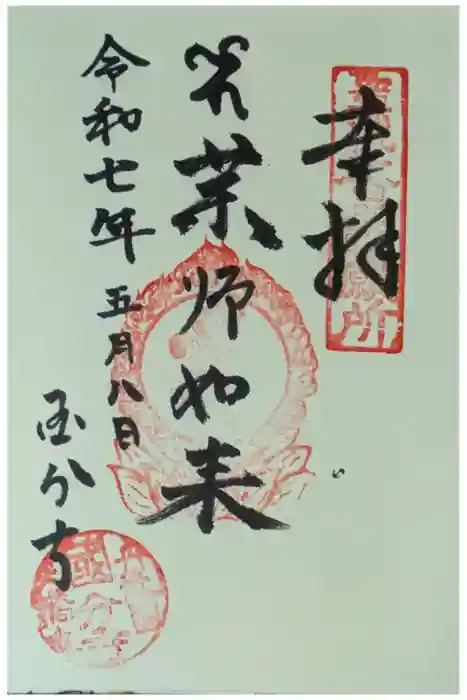 奉拝
薬師如来
令和七年五月八日
国分寺